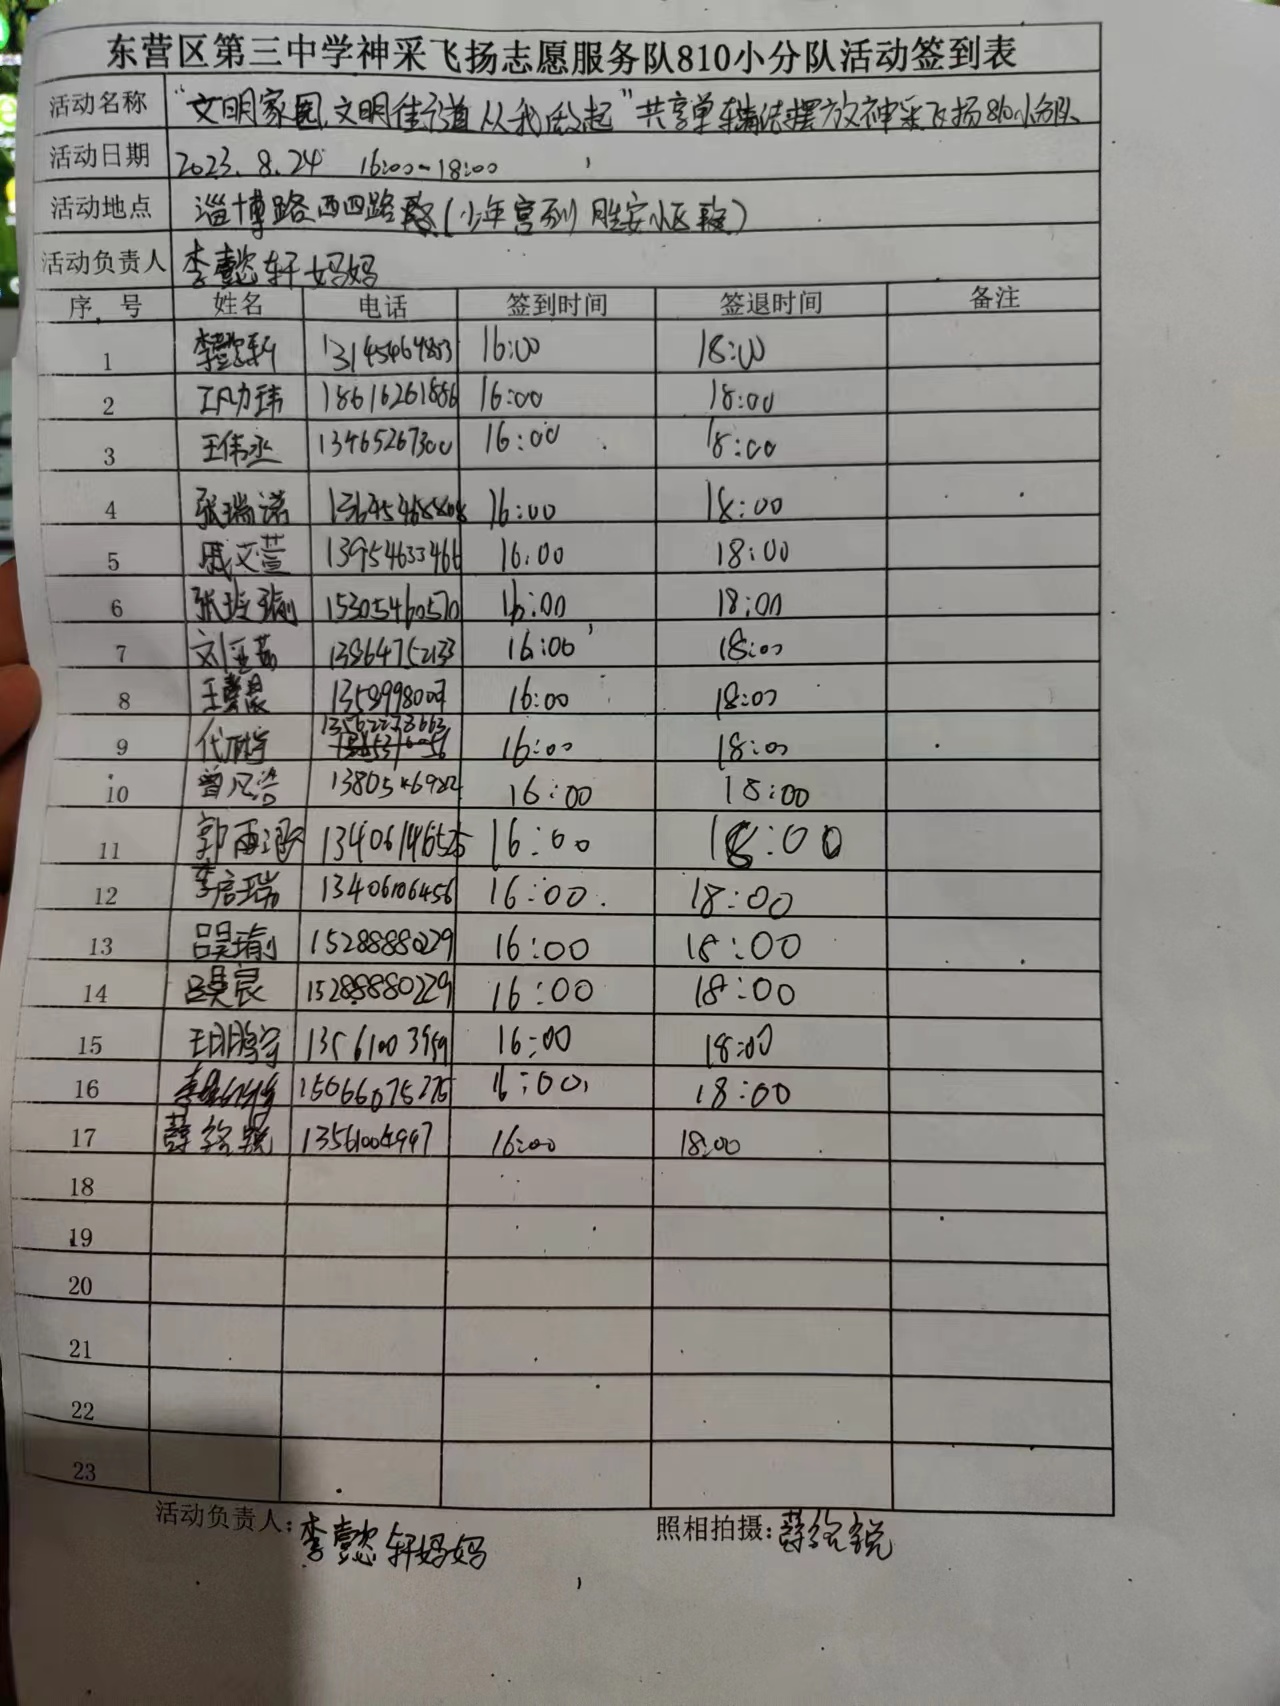 东营区第三中学神采飞扬志愿服务队810小分队活动签到表
活动名称 "文明家园,文明街道从我做起"共享单车摆放神采飞扬810小分队
活动日期 2023.8.24 16:00-18:00
活动地点 淄博路西四路(少年宫到胜安小区段)
活动负责人 李懿轩妈妈
序号 姓名 电话 签到时间 签退时间 备注
1 16:00 18:00
2 18616261886 16:00 18:00
3 王伟丞 13465267300 16:00 18:00
4 张瑞诺 16:00 18:00
5 戚文萱 13954633466 16:00 18:00
6 15305460570 16:00 18:00
7 16:00 18:00
8 16:00 18:00
9 13562273663 16:00 18:00
10 曾凡浩 16:00 18:00
11 13406146525 16:00 18:00
12 李启瑞 13406106456 16:00 18:00
13 吕昊瑜 15288880229 16:00 18:00
14 吕昊宸 15288880229 16:00 18:00
15 13561003959 16:00 18:00
16 15066075275 16:00 18:00
17 薛铭锐 13561004997 16:00 18:00
18
19
20
21
22
23
活动负责人:李懿轩妈妈 照相拍摄:薛铭锐